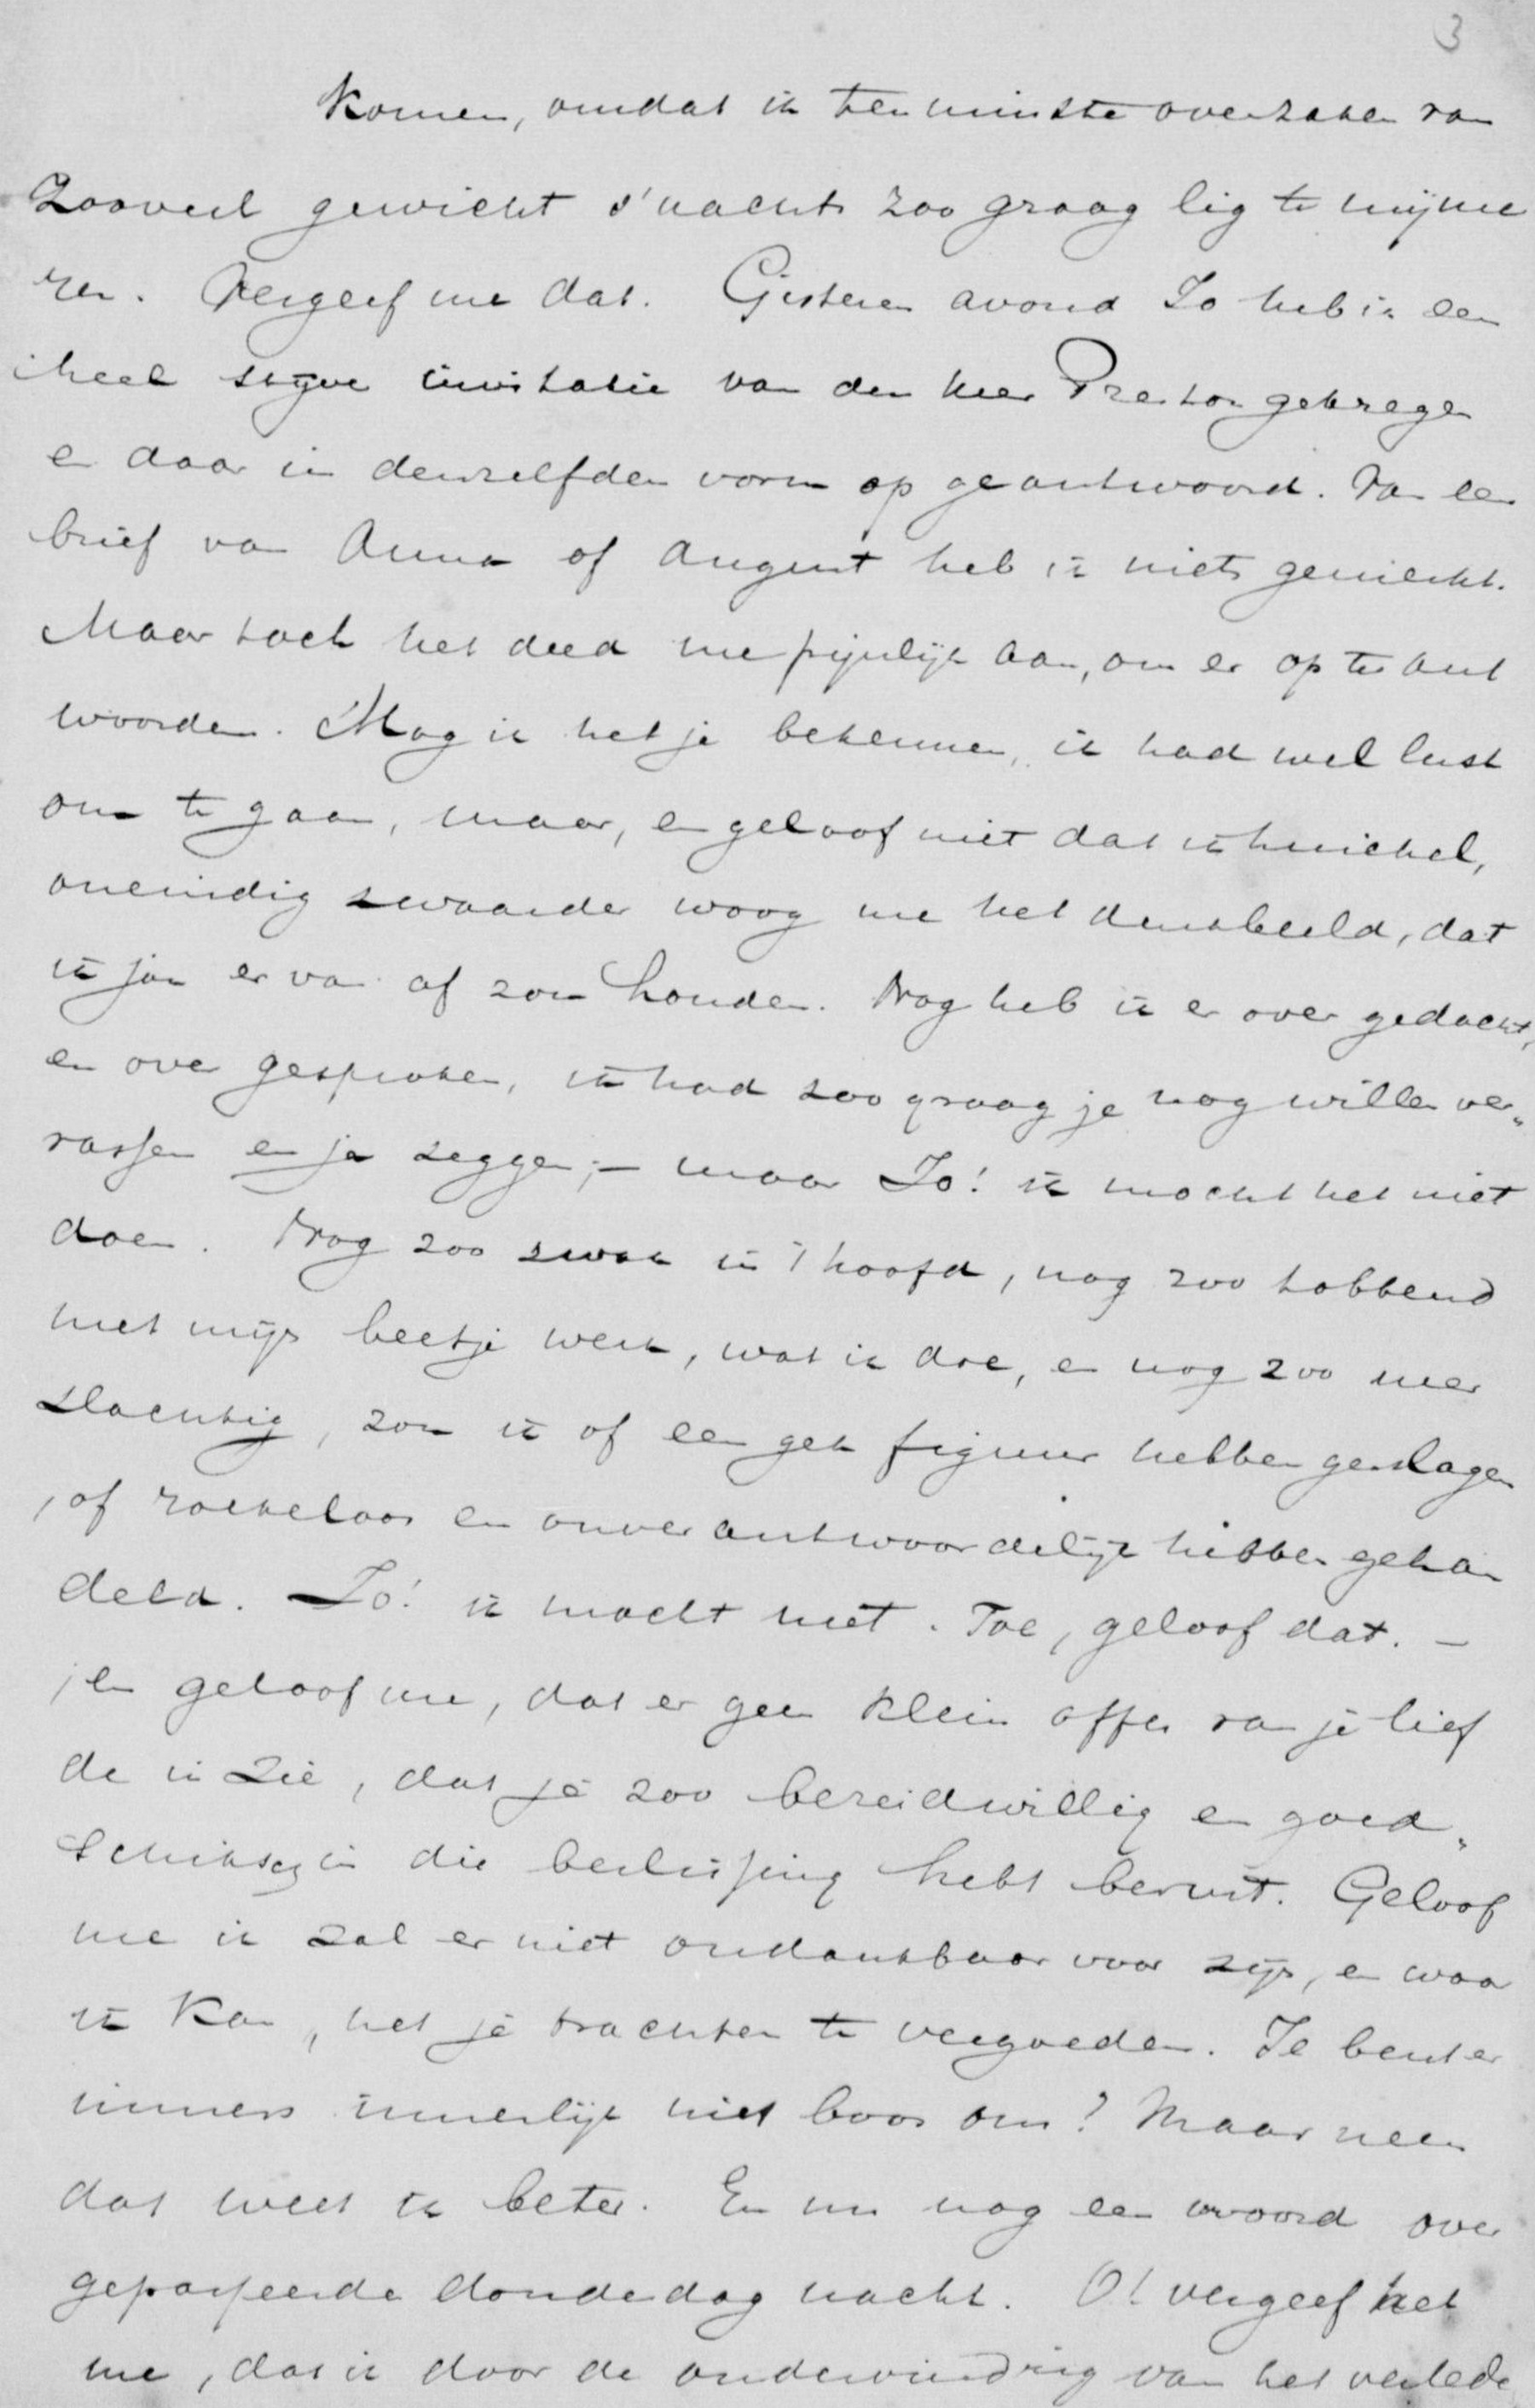 3
komen, omdat ik ten minste over zaken van
zooveel gewicht s'nachts zoo graag lig te mijme
ren. Vergeef me dat. Gisteren avond Jo heb ik een
heel stijve invitatie van den heer Preston gekregen
en daar in denzelfden vorm op geantwoord. Van een
brief van Anna of August heb ik niets gemerkt.
Maar toch het deed me pijnlijk aan, om er op te ant
woorden. Mag ik het je bekennen, ik had wel lust
om te gaan, maar, en geloof niet dat ik huichel,
oneindig zwaarder woog me het denkbeeld, dat
ik jou er van af zou houden. Nog heb ik er over gedacht,
en over gesproken, ik had zoo graag je nog willen ver„
rassen en ja zeggen; – maar Jo! ik mocht het niet
doen. Nog zoo zwak in 't hoofd, nog zoo tobbend
met mijn beetje werk, wat ik doe, en nog zoo neer
slachtig, zou ik of een gek figuur hebben geslagen
, of roekeloos en onverantwoordelijk hebben gehan
deld. Jo! ik mocht niet. Toe, geloof dat. –
, en geloof me, dat er geen klein offer van je lief
de in zie, dat je zoo bereidwillig en goed„
schiks in die beslissing hebt berust. Geloof
me ik zal er niet ondankbaar voor zijn, en waar
ik kan, het je trachten te vergoeden. Je bent er
immers innerlijk niet boos om? Maar neen
dat weet ik beter. En nu nog een woord over
gepasseerde donderdag nacht. O! vergeef het
me, dat ik door de ondervinding van het verlede